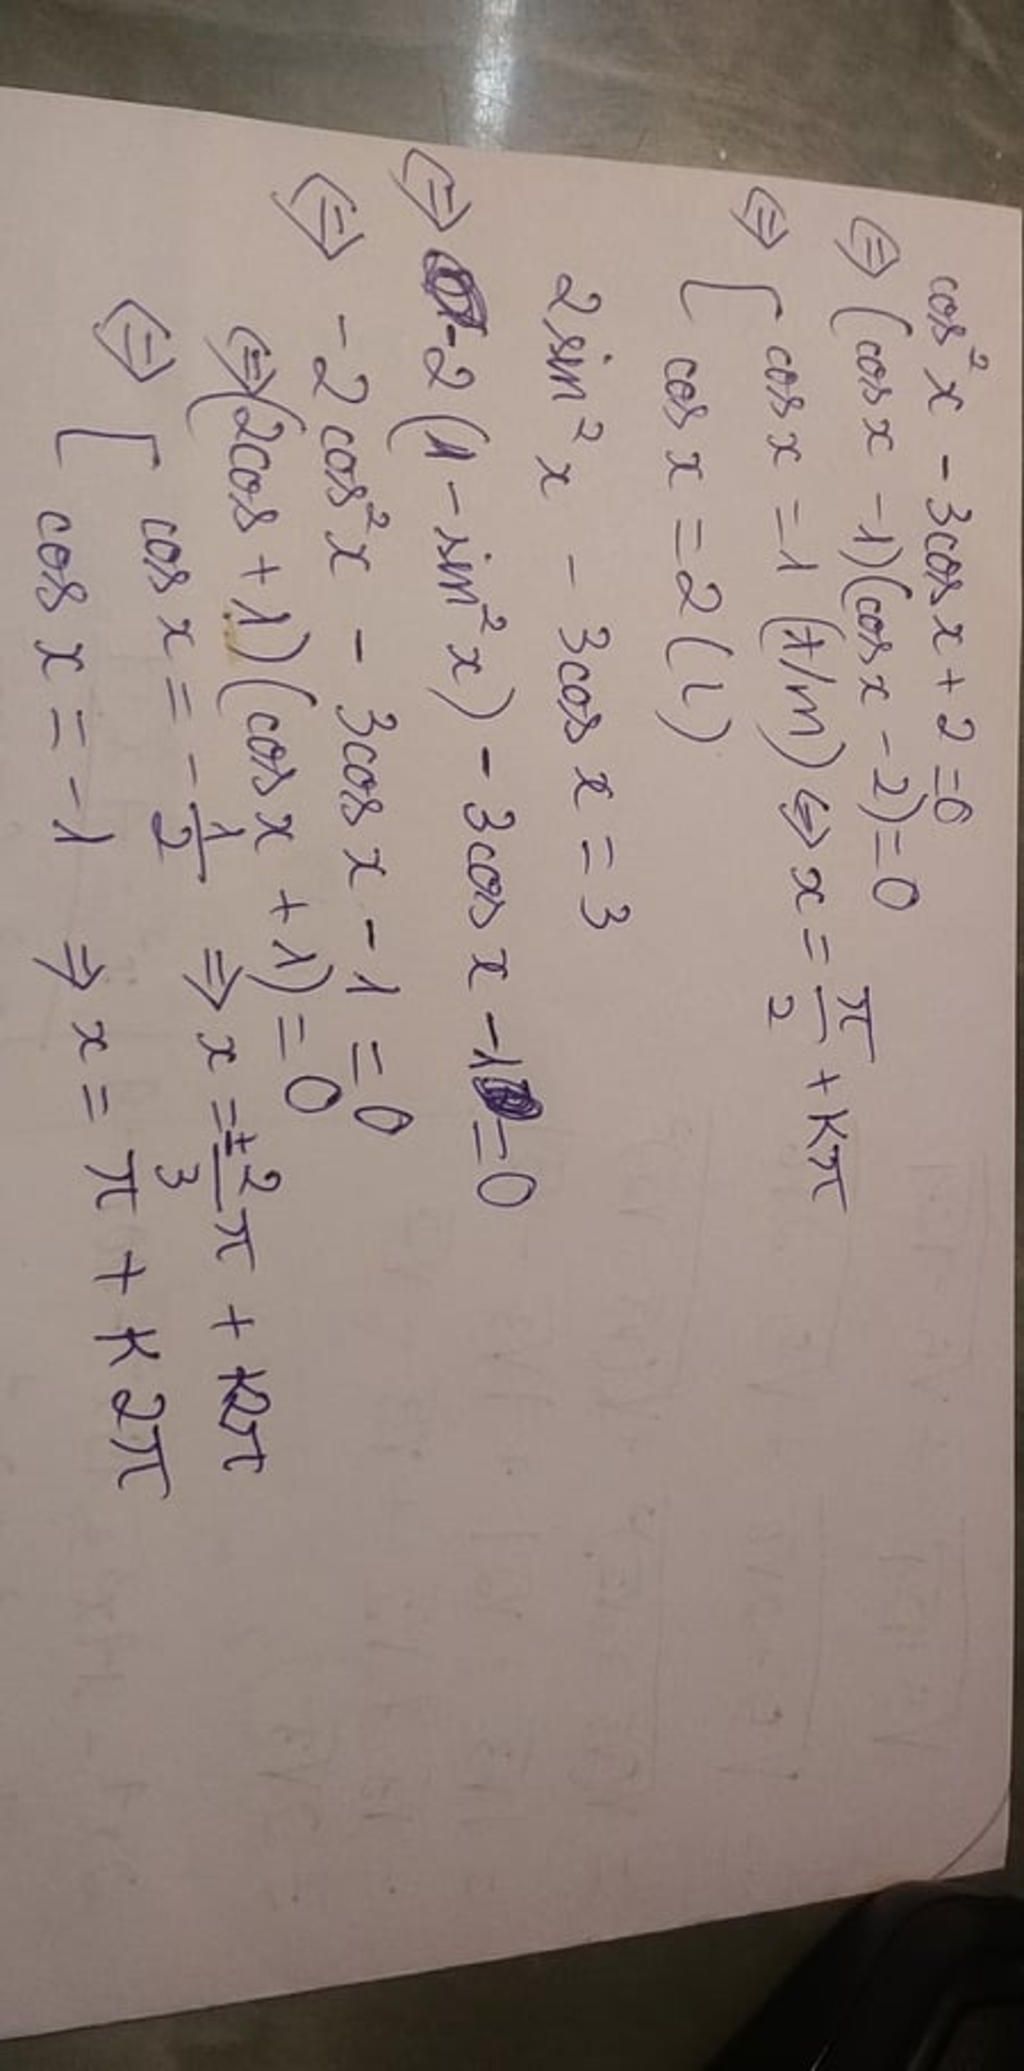 cos²x - 3cosx + 2 = 0
⇔ (cosx - 1)(cosx - 2) = 0
⇔ [ cosx = 1 (t/m) ⇔ x = π/2 + kπ
cosx = 2 (L)
2sin²x - 3cosx = 3
⇔ -2(1 - sin²x) - 3cosx - 1 = 0
⇔ -2cos²x - 3cosx - 1 = 0
⇔ (2cos + 1)(cosx + 1) = 0
⇔ [ cosx = -1/2 ⇒ x = ±2/3 π + k2π
cosx = -1 ⇒ x = π + k2π